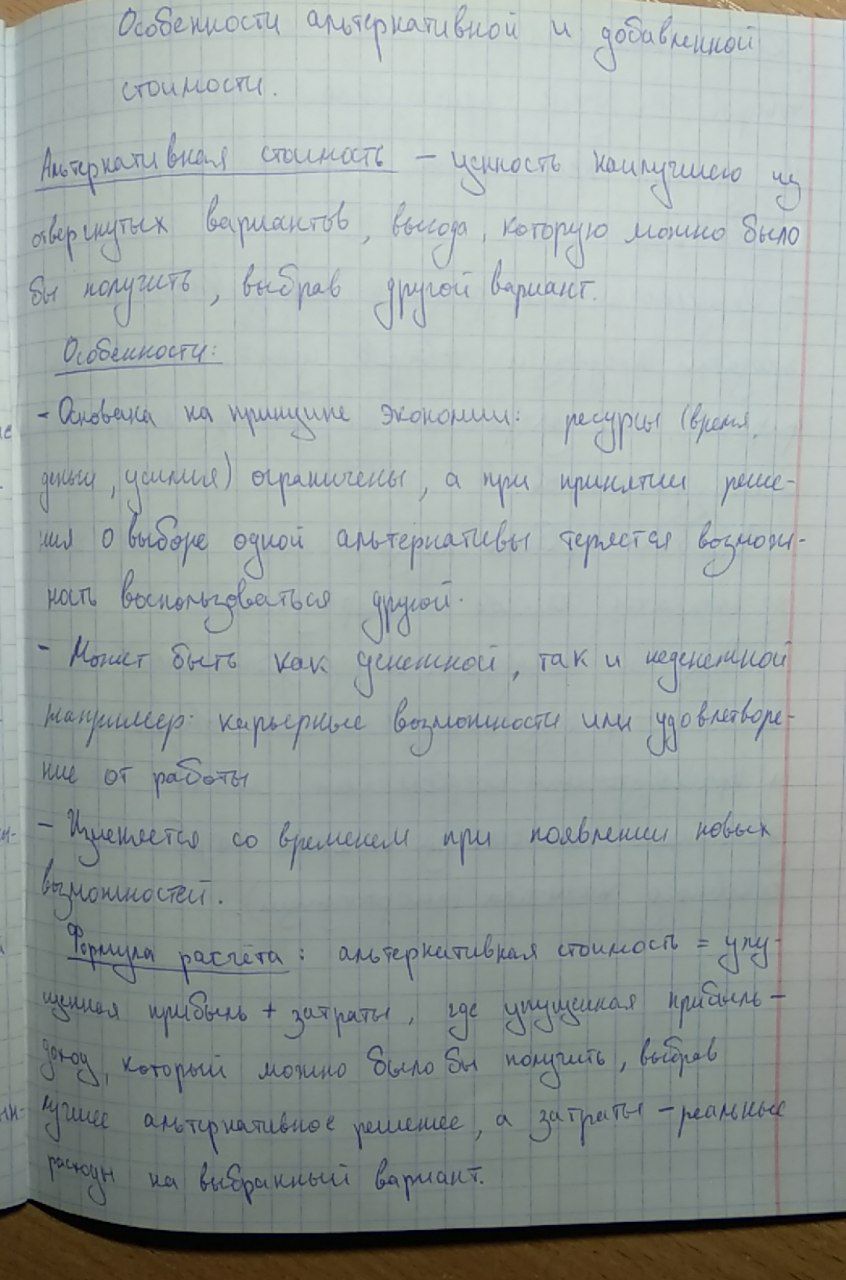 Особенности альтернативной и добавленной
стоимости.
Альтернативная стоимость – ценность наилучшего из
отвергнутых вариантов, выгода, которую можно было
бы получить, выбрав другой вариант.
Особенности:
- Основана на принципе экономии: ресурсы (время,
деньги, усилия) ограничены, а при принятии реше-
ния о выборе одной альтернативы теряется возмож-
ность воспользоваться другой.
- Может быть как денежной, так и неденежной
например: карьерные возможности или удовлетворе-
ние от работы
- Изменяется со временем при появлении новых
возможностей.
Формула расчёта: альтернативная стоимость = упу-
щенная прибыль + затраты, где упущенная прибыль –
доход, который можно было бы получить, выбрав
лучшее альтернативное решение, а затраты – реальные
расходы на выбранный вариант.